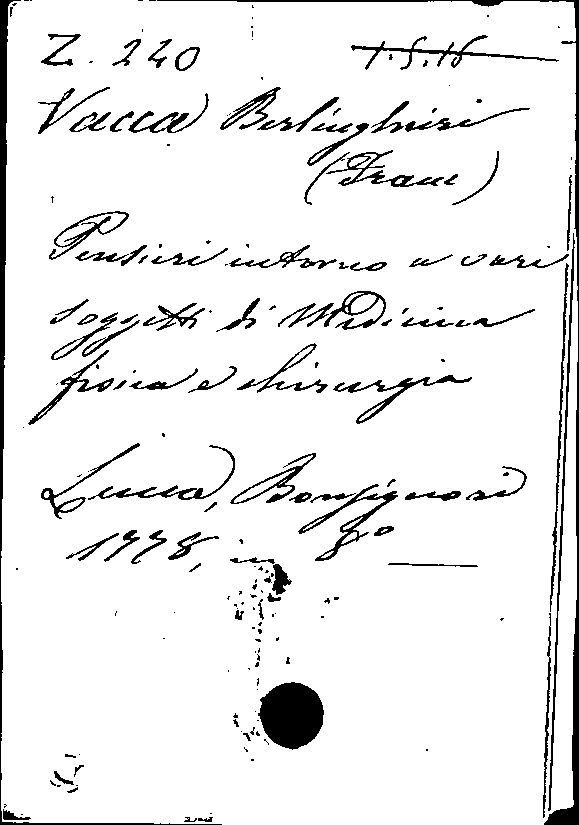 Z. 220 1.5.16
Vacca Berlinghieri
(Franc)
Pensieri intorno a vari
soggetti di Medicina
fisica e chirurgia
Lucca, Bonsignori
1778, in 8°